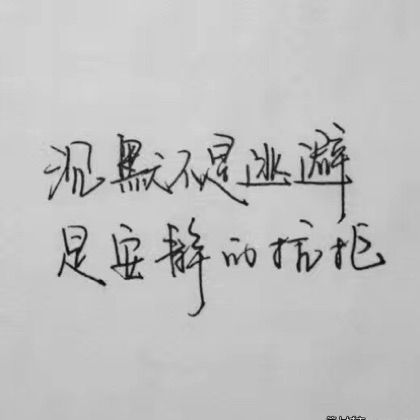 沉默不是逃避
是安静的抗拒